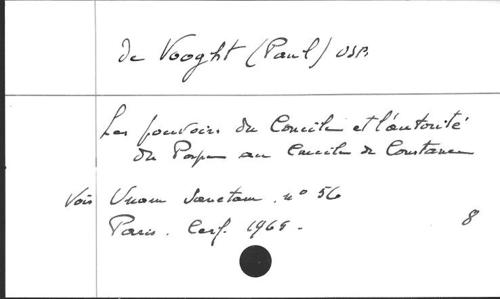 de Vooght (Paul) OSB
Les pouvoirs du Concile et l'autorité
du Pape au Concile de Constance
Voir Unam Sanctam. n° 56
Paris. Cerf. 1965.
8